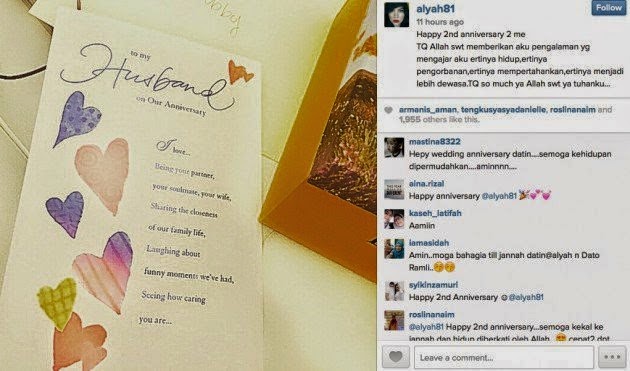 baby
to my
Husband
on Our Anniversary
I love...
Being your partner,
your soulmate, your wife,
Sharing the closeness
of our family life,
Laughing about
funny moments we've had,
Seeing how caring
you are...
alyah81
11 hours ago
Follow
Happy 2nd anniversary 2 me
TQ Allah swt memberikan aku pengalaman yg
mengajar aku ertinya hidup,ertinya
pengorbanan,ertinya mempertahankan,ertinya menjadi
lebih dewasa.TQ so much ya Allah swt ya tuhanku...
armanis_aman, tengkusyasyadanielle, roslinanaim and
1,955 others like this.
mastina8322
Hepy wedding anniversary datin....semoga kehidupan
dipermudahkan....aminnnn....
aina.rizal
Happy anniversary @alyah81 🎉💕💕
kaseh_latifah
Aamiin
iamasidah
Amin..moga bahagia till jannah datin@alyah n Dato
Ramli..😚😚
syikinzamuri
Happy 2nd Anniversary ☺@alyah81
roslinanaim
@alyah81 Happy 2nd anniversary...semoga kekal ke
jannah dan hidup diberkati oleh Allah. 😚 cepat2 dpt
Leave a comment...